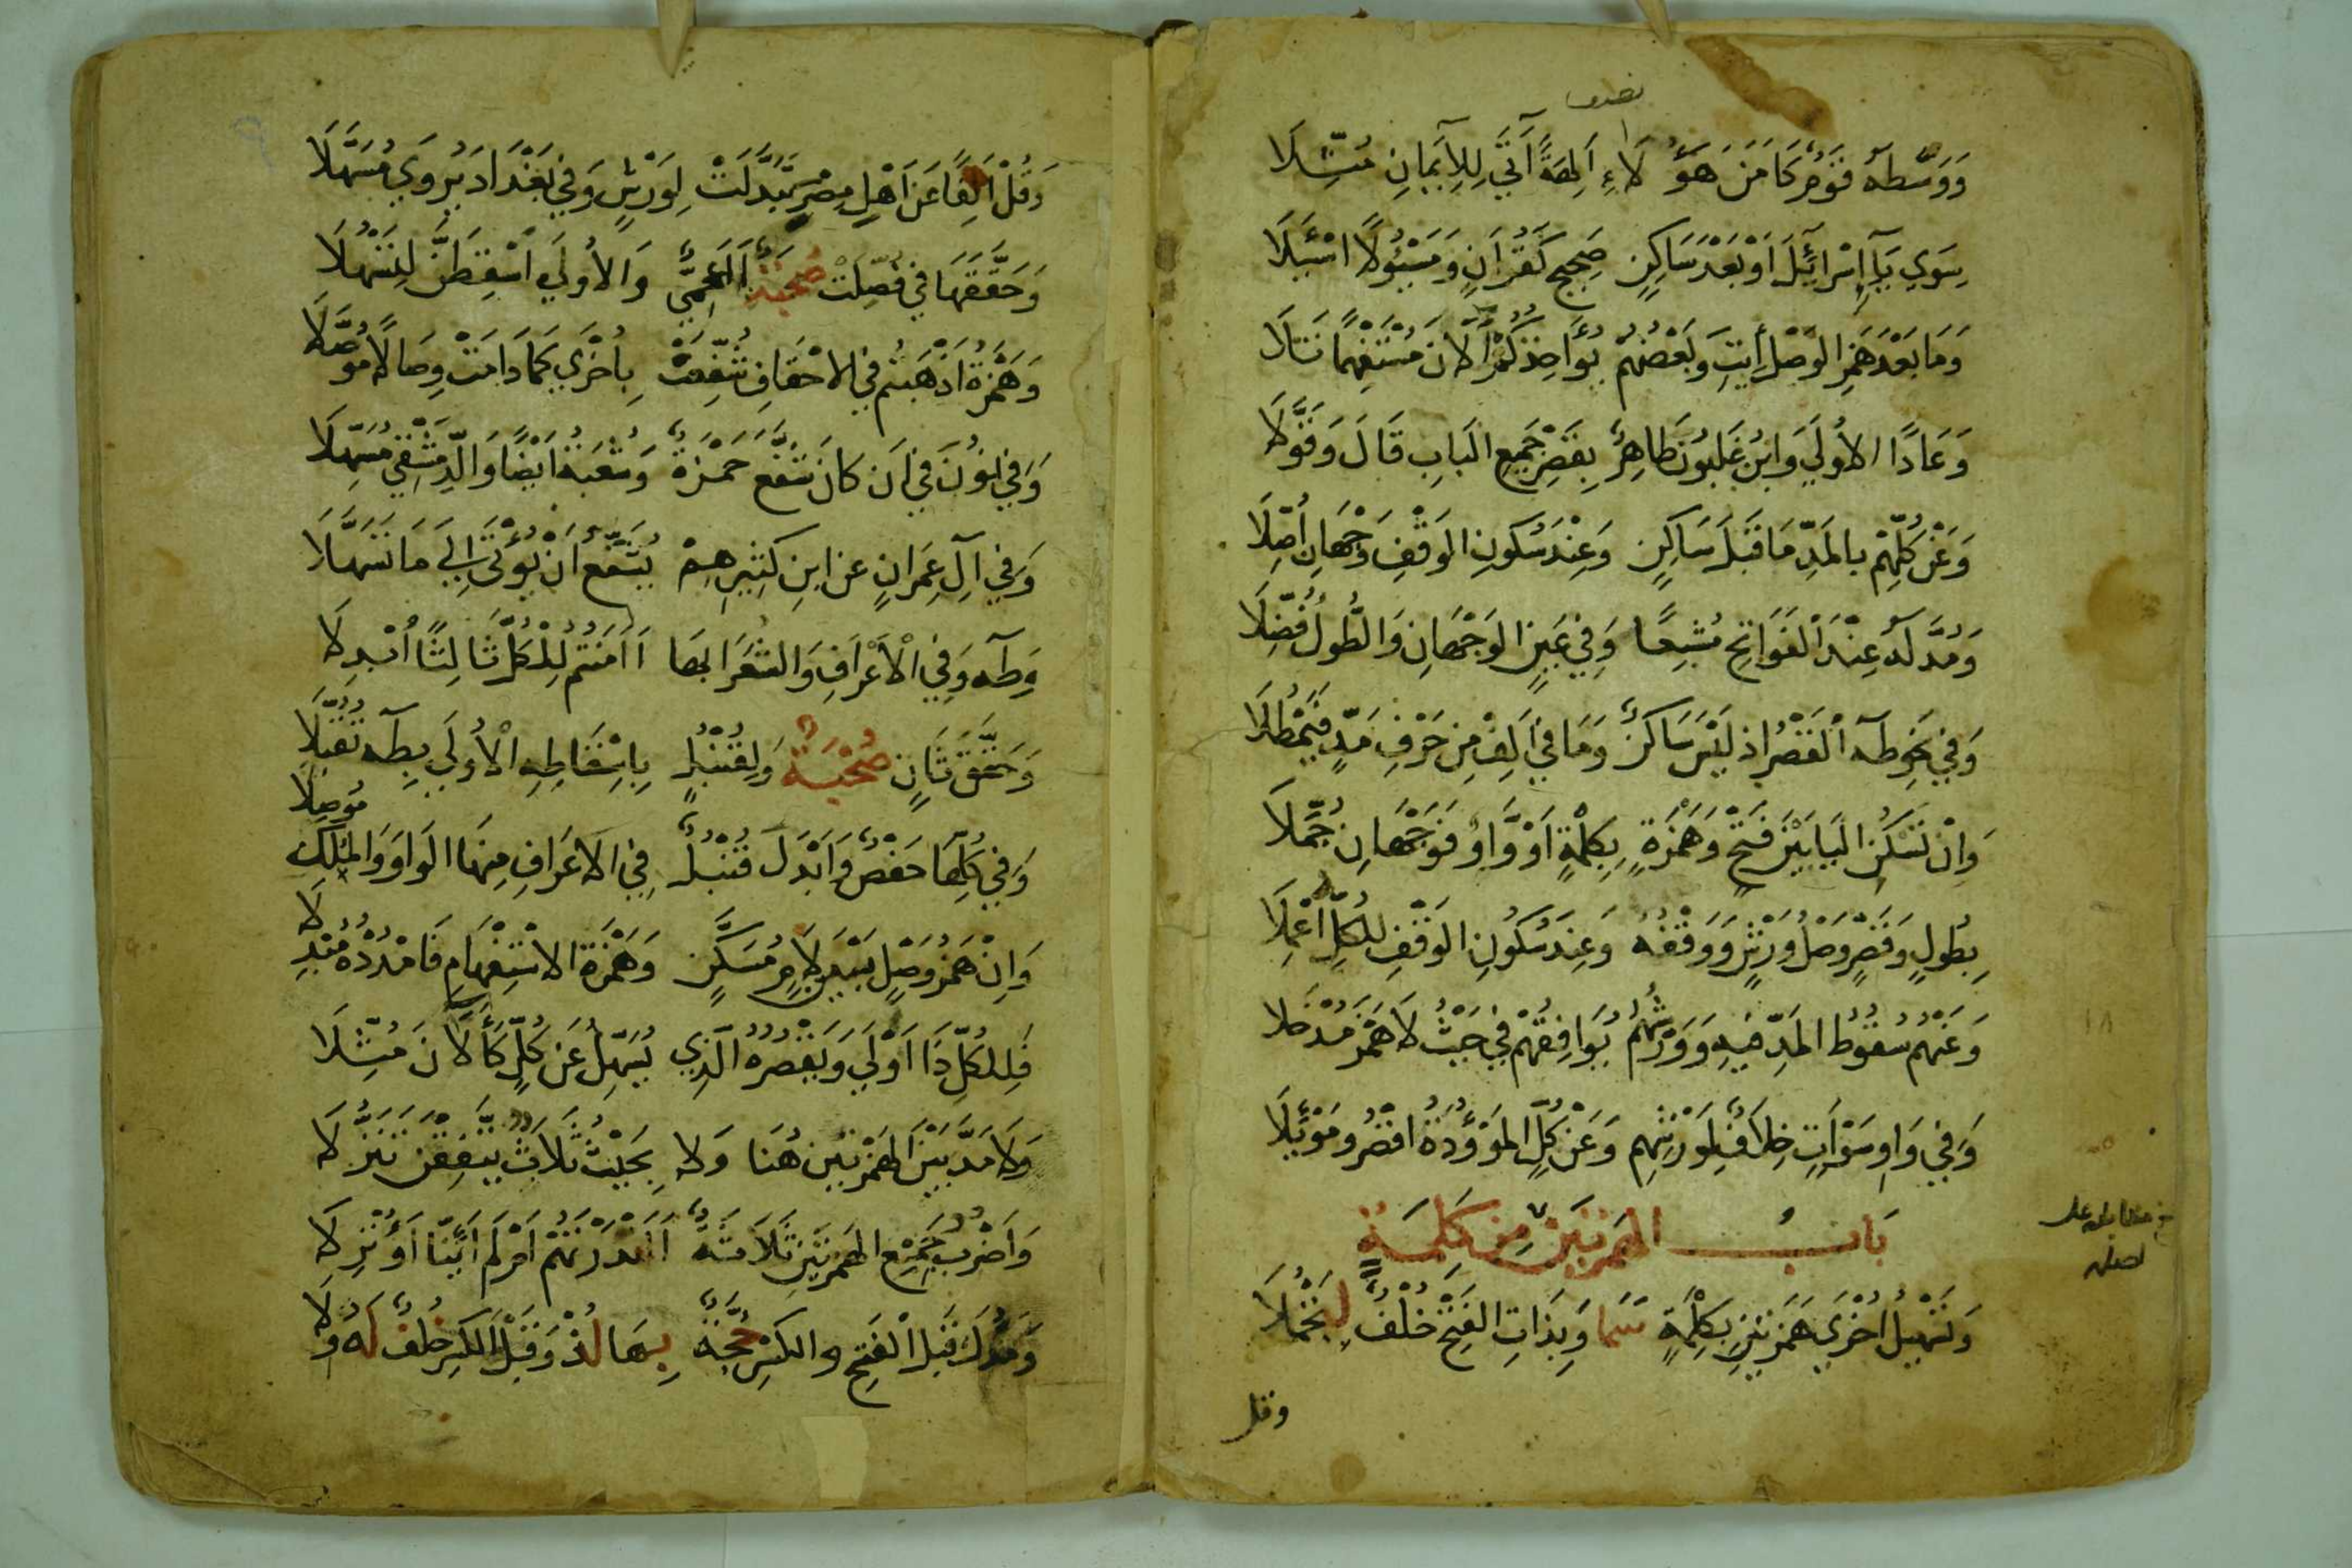 وَوَسَّطَهُ قَوْمٌ كَآمَنَ هَؤُلَاءِ آلِهَةً آتَى لِلْإِيمَانِ مُثِّلَا
سِوَى يَاءِ إِسْرَائِيلَ أَوْ بَعْدَ سَاكِنٍ صَحِيحٍ كَقُرْآنٍ وَمَسْئُولًا اسْئَلَا
وَمَا بَعْدَ هَمْزِ الْوَصْلِ إِيتِ وَبَعْضُهُمْ يُؤَاخِذُكُمْ آلَانَ مُسْتَفْهِمًا تَلَا
وَعَادًا الْأُولَى وَابْنُ غَلْبُونَ طَاهِرٌ بِقَصْرِ جَمِيعِ الْبَابِ قَالَ وَقَوَّلَا
وَعَنْ كُلِّهِمْ بِالْمَدِّ مَا قَبْلَ سَاكِنٍ وَعِنْدَ سُكُونِ الْوَقْفِ وَجْهَانِ أُصِّلَا
وَمُدَّ لَهُ عِنْدَ الْفَوَاتِحِ مُشْبِعًا وَفِي عَيْنٍ الْوَجْهَانِ وَالطُّولُ فُضِّلَا
وَفِي نَحْوِ طَهَ الْقَصْرُ إِذْ لَيْسَ سَاكِنٌ وَمَا فِي أَلِفْ مِنْ حَرْفِ مَدٍّ فَيُمْطَلَا
وَإِنْ تَسْكُنِ الْيَا بَيْنَ فَتْحٍ وَهَمْزَةٍ بِكِلْمَةٍ أَوْ وَاوٌ فَوَجْهَانِ جُمِّلَا
بِطُولٍ وَقَصْرٍ وَصْلُ وَرْشٍ وَوَقْفُهُ وَعِنْدَ سُكُونِ الْوَقْفِ لِلْكُلِّ أُعْمِلَا
وَعَنْهُمْ سُقُوطُ الْمَدِّ فِيهِ وَوَرْشُهُمْ يُوَافِقُهُمْ فِي حَيْثُ لَا هَمْزَ مُدْخَلَا
وَفِي وَاوِ سَوْآتٍ خِلَافٌ لِوَرْشِهِمْ وَعَنْ كُلٍّ الْمَوْؤُدَةُ اقْصُرْ وَمَوْئِلَا
بَابُ الْهَمْزَتَيْنِ مِنْ كَلِمَةٍ
وَتَسْهِيلُ أُخْرَى هَمْزَتَيْنِ بِكِلْمَةٍ سَمَا وَبِذَاتِ الْفَتْحِ خُلْفٌ لِتَجْمُلَا
وقل
وَقُلْ أَلِفًا عَنْ أَهْلِ مِصْرَ تَبَدَّلَتْ لِوَرْشٍ وَفِي بَغْدَادَ يُرْوَى مُسَهَّلَا
وَحَقَّقَهَا فِي فُصِّلَتْ صُحْبَةٌ أَأَعْجَمِيٌّ وَالْأُولَى أَسْقِطَنَّ لِتَسْهُلَا
وَهَمْزَةُ أَذْهَبْتُمْ فِي الْأَحْقَافِ شُفِّعَتْ بِأُخْرَى كَمَا دَامَتْ وِصَالًا مُوَصَّلَا
وَفِي نُونَ فِي أَنْ كَانَ شَفَّعَ حَمْزَةٌ وَشُعْبَةُ أَيْضًا وَالدِّمَشْقِي مُسَهِّلَا
وَفِي آلِ عِمْرَانٍ عَنِ ابْنِ كَثِيرِهِمْ يُشَفَّعُ أَنْ يُؤْتَى إِلَى مَا تَسَهَّلَا
وَطَهَ وَفِي الْأَعْرَافِ وَالشُّعَرَا بِهَا أَآمَنْتُمُ لِلْكُلِّ ثَالِثًا أُبْدِلَا
وَحَقَّقَ ثَانٍ صُحْبَةٌ وَلِقُنْبُلٍ بِإِسْقَاطِهِ الْأُولَى بِطَهَ تُقُبِّلَا
وَفِي كُلِّهَا حَفْصٌ وَأَبْدَلَ قُنْبُلٌ فِي الْأَعْرَافِ مِنْهَا الْوَاوَ وَالْمُلْكِ مُوصِلَا
وَإِنْ هَمْزُ وَصْلٍ بَيْنَ لَامٍ مُسَكَّنٍ وَهَمْزَةِ الِاسْتِفْهَامِ فَامْدُدْهُ مُبْدِلَا
فَلِلْكُلِّ ذَا أَوْلَى وَيَقْصُرُهُ الَّذِي يُسَهِّلُ عَنْ كُلٍّ كَآلَانَ مُثِّلَا
وَلَا مَدَّ بَيْنَ الْهَمْزَتَيْنِ هُنَا وَلَا بِحَيْثُ ثَلَاثٌ يَتَّفِقْنَ تَنَزُّلَا
وَأَضْرُبُ جَمْعِ الْهَمْزَتَيْنِ ثَلَاثَةٌ أَأَنْذَرْتَهُمْ أَمْ لَمْ أَئِنَّا أَؤُنْزِلَا
وَمَدُّكَ قَبْلَ الْفَتْحِ وَالْكَسْرِ حُجَّةٌ بِهَا لُذْ وَقَبْلَ الْكَسْرِ خُلْفٌ لَهُ وَلَا